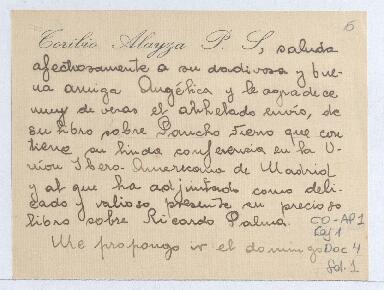 6
Toribio Alayza P. S, saluda
afectuosamente a su dadivosa y bue-
na amiga Angélica y le agradece
muy de veras el anhelado envío, de
su libro sobre Pancho Fierro que con
tiene su linda conferencia en la U-
nion Ibero-Americana de Madrid
y al que ha adjuntado como deli-
cado y valioso presente su precioso
libro sobre Ricardo Palma.
Me propongo ir el domingo
CO-AP1
Caj 1
Doc 4
Fol. 1